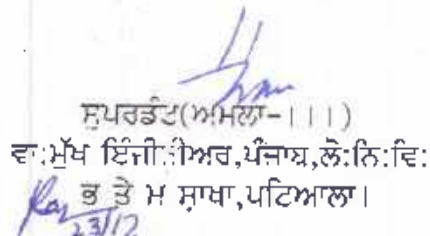 ਸੁਪਰਡੰਟ(ਅਮਲਾ-।।।)
ਵਾ:ਮੁੱਖ ਇੰਜੀਨੀਅਰ,ਪੰਜਾਬ,ਲੋ:ਨਿ:ਵਿ:
ਭ ਤੇ ਮ ਸ਼ਾਖਾ,ਪਟਿਆਲਾ।
23/12